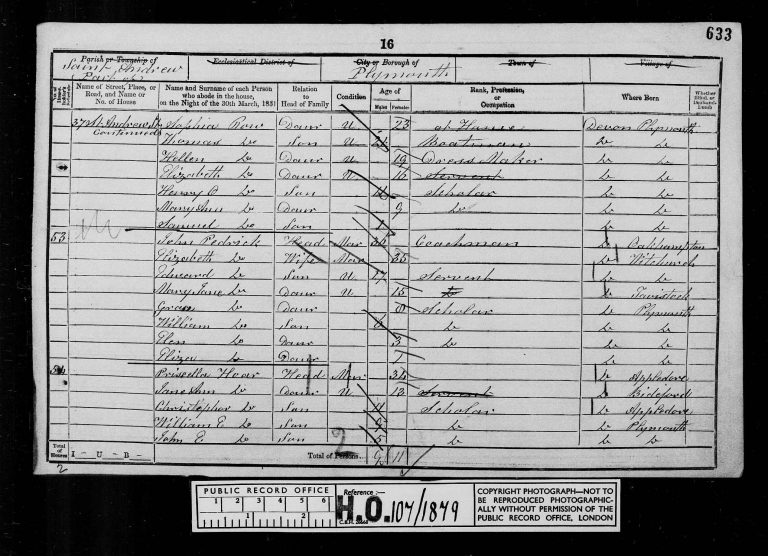 16
633
Parish or Township of
Ecclesiastical District of
City or Borough of
Town of
Village of
Saint Andrew
Part of
Plymouth
Name of Street, Place, or Road, and Name or No. of House
Name and Surname of each Person who abode in the house, on the Night of the 30th March, 1851
Relation to Head of Family
Condition
Age of
Males
Females
Rank, Profession, or Occupation
Where Born
Whether Blind, or Deaf-and-Dumb
37 St. Andrew St Sophia Row Daur U 23 at Home Devon Plymouth
Continued Thomas Do Son U Boatman Do Do
Hellen Do Daur U 19 Dress Maker Do Do
Elizabeth Do Daur U 16 Servent Do Do
Henry P Do Son Scholar Do Do
Mary Ann Do Daur 9 Do Do Do
Samuel Do Son 1 Do Do
53 John Pedrick Head Mar Coachman Do Oakhampton
Elizabeth Do Wife Mar 35 Do Witchurch
Edward Do Son U 17 Servent Do Do
Mary Jane Do Daur U 15 Do Do Tavistock
Grace Do Daur 8 Scholar Do Plymouth
William Do Son 6 Do Do Do
Elen Do Daur 3 Do Do Do
Eliza Do Daur 1 Do Do
54 Priscella Hoar Head Mar Do Appledore
Jane Ann Do Daur U 13 Servent Do Bideford
Christopher Do Son 11 Scholar Do Appledore
William E Do Son 9 Do Do Plymouth
John E Do Son 5 Do Do Do
Total of Houses
2
I - U - B -
Total of Persons
2
9 11
PUBLIC RECORD OFFICE
1 2 3 4 5 6
1 2
Reference :-
H.O. 107/1879
COPYRIGHT PHOTOGRAPH—NOT TO
BE REPRODUCED PHOTOGRAPHIC-
ALLY WITHOUT PERMISSION OF THE
PUBLIC RECORD OFFICE, LONDON